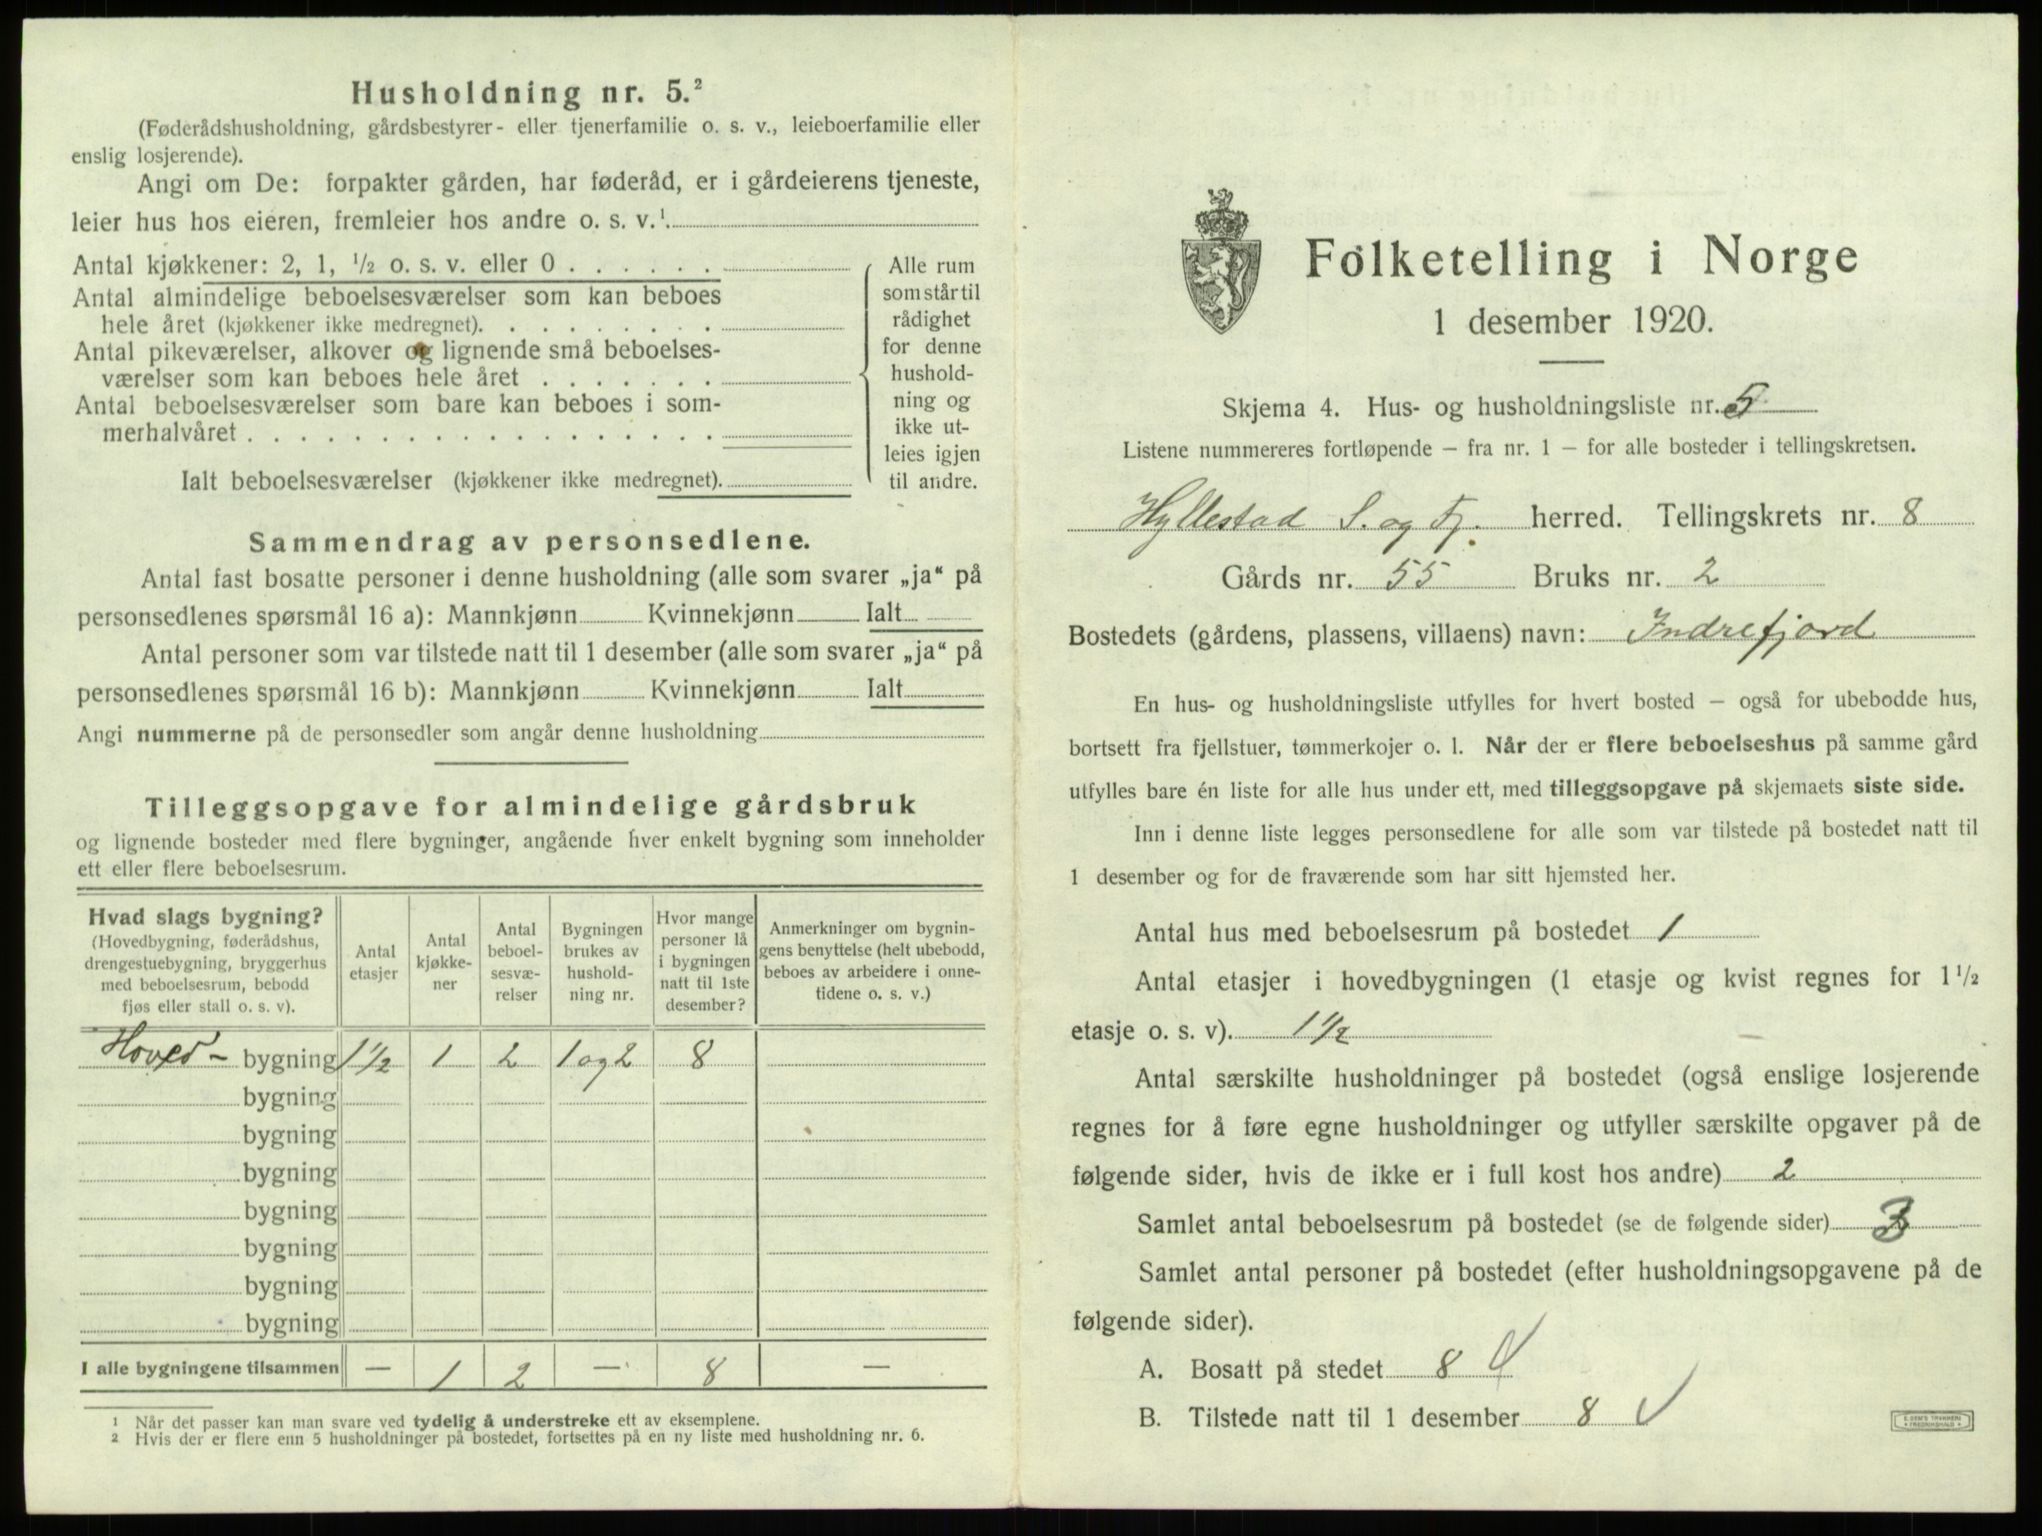 Husholdning nr. 5.²
(Føderådshusholdning, gårdsbestyrer- eller tjenerfamilie o. s. v., leieboerfamilie eller
enslig losjerende).
Angi om De: forpakter gården, har føderåd, er i gårdeierens tjeneste,
leier hus hos eieren, fremleier hos andre o. s. v.¹.
Antal kjøkkener: 2, 1, ½ o. s. v. eller 0 . . . . . .
Antal almindelige beboelsesværelser som kan beboes
hele året (kjøkkener ikke medregnet). . . . . . . . .
Antal pikeværelser, alkover og lignende små beboelses-
værelser som kan beboes hele året . . . . . . .
Antal beboelsesværelser som bare kan beboes i som-
merhalvåret . . . . . . . . . . . . . . . . . .
Ialt beboelsesværelser (kjøkkener ikke medregnet).
Alle rum
som står til
rådighet
for denne
hushold-
ning og
ikke ut-
leies igjen
til andre.
Sammendrag av personsedlene.
Antal fast bosatte personer i denne husholdning (alle som svarer „ja“ på
personsedlenes spørsmål 16 a): Mannkjønn Kvinnekjønn Ialt
Antal personer som var tilstede natt til 1 desember (alle som svarer „ja“ på
personsedlenes spørsmål 16 b): Mannkjønn Kvinnekjønn Ialt
Angi nummerne på de personsedler som angår denne husholdning
Tilleggsopgave for almindelige gårdsbruk
og lignende bosteder med flere bygninger, angående hver enkelt bygning som inneholder
ett eller flere beboelsesrum.
Hvad slags bygning?
(Hovedbygning, føderådshus,
drengestuebygning, bryggerhus
med beboelsesrum, bebodd
fjøs eller stall o. s. v).
Antal
etasjer
Antal
kjøkke-
ner
Antal
beboel-
sesvæ-
relser
Bygningen
brukes av
hushold-
ning nr.
Hvor mange
personer lå
i bygningen
natt til 1ste
desember?
Anmerkninger om bygnin-
gens benyttelse (helt ubebodd,
beboes av arbeidere i onne-
tidene o. s. v.)
Hoved- bygning 1½ 1 2 1 og 2 8
bygning
bygning
bygning
bygning
bygning
bygning
bygning
I alle bygningene tilsammen — 1 2 — 8 —
¹ Når det passer kan man svare ved tydelig å understreke ett av eksemplene.
² Hvis der er flere enn 5 husholdninger på bostedet, fortsettes på en ny liste med husholdning nr. 6.
Folketelling i Norge
1 desember 1920.
Skjema 4. Hus- og husholdningsliste nr. 5
Listene nummereres fortløpende – fra nr. 1 – for alle bosteder i tellingskretsen.
Hyllestad S. og Fj. herred. Tellingskrets nr. 8
Gårds nr. 55 Bruks nr. 2
Bostedets (gårdens, plassens, villaens) navn: Indrefjord
En hus- og husholdningsliste utfylles for hvert bosted – også for ubebodde hus,
bortsett fra fjellstuer, tømmerkojer o. l. Når der er flere beboelseshus på samme gård
utfylles bare én liste for alle hus under ett, med tilleggsopgave på skjemaets siste side.
Inn i denne liste legges personsedlene for alle som var tilstede på bostedet natt til
1 desember og for de fraværende som har sitt hjemsted her.
Antal hus med beboelsesrum på bostedet 1
Antal etasjer i hovedbygningen (1 etasje og kvist regnes for 1½
etasje o. s. v). 1½
Antal særskilte husholdninger på bostedet (også enslige losjerende
regnes for å føre egne husholdninger og utfyller særskilte opgaver på de
følgende sider, hvis de ikke er i full kost hos andre) 2
Samlet antal beboelsesrum på bostedet (se de følgende sider) 3
Samlet antal personer på bostedet (efter husholdningsopgavene på de
følgende sider).
A. Bosatt på stedet 8
B. Tilstede natt til 1 desember 8